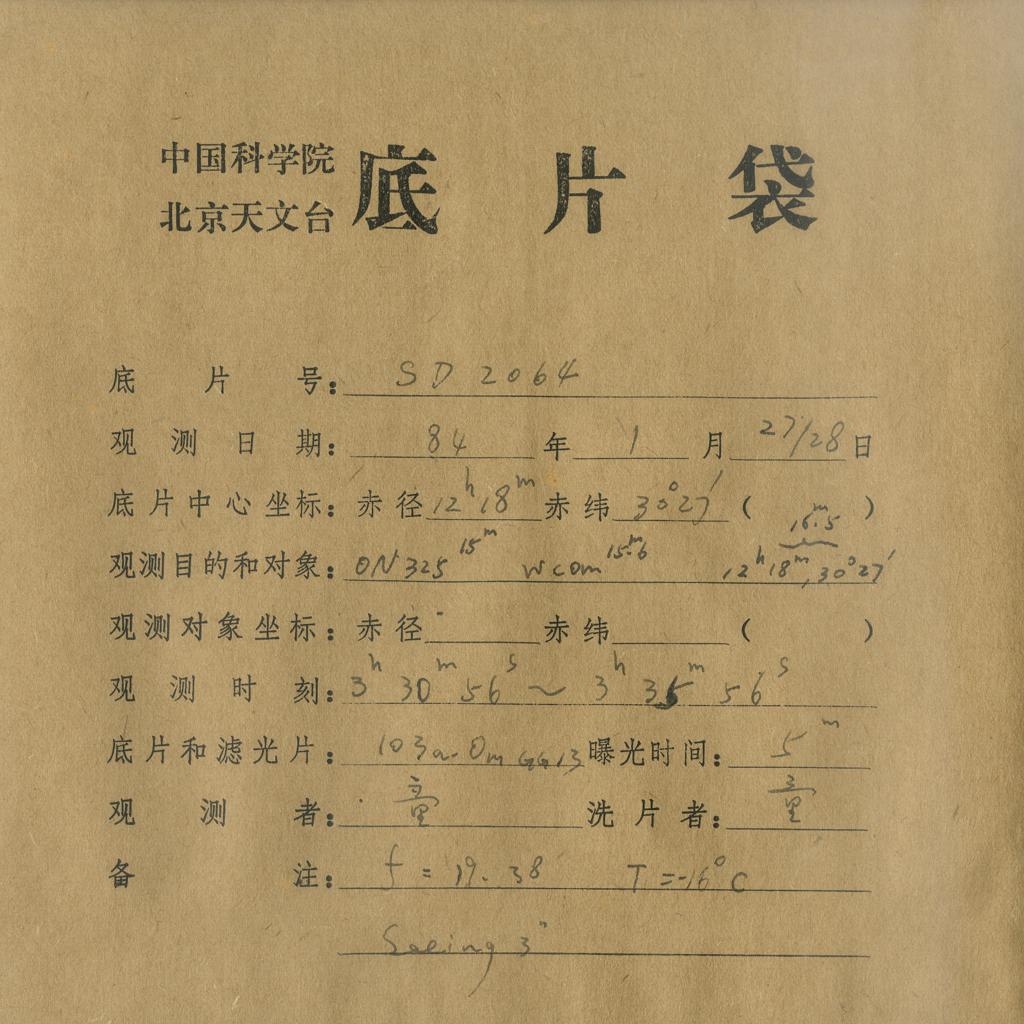 中国科学院
北京天文台
底片袋
底片号: SD 2064
观测日期: 84 年 1 月 27/28 日
底片中心坐标: 赤径 12h 18m 赤纬 30°27′ ( )
16m.5
观测目的和对象: ON 325 15m W com 15m.6 12h 18m, 30°27′
观测对象坐标: 赤径 赤纬 ( )
观测时刻: 3h 30m 56s ~ 3h 35m 56s
底片和滤光片: 103a-O GG13 曝光时间: 5m
观测者: 童 洗片者: 童
备注: f = 19.38 T = -16°C
Seeing 3″